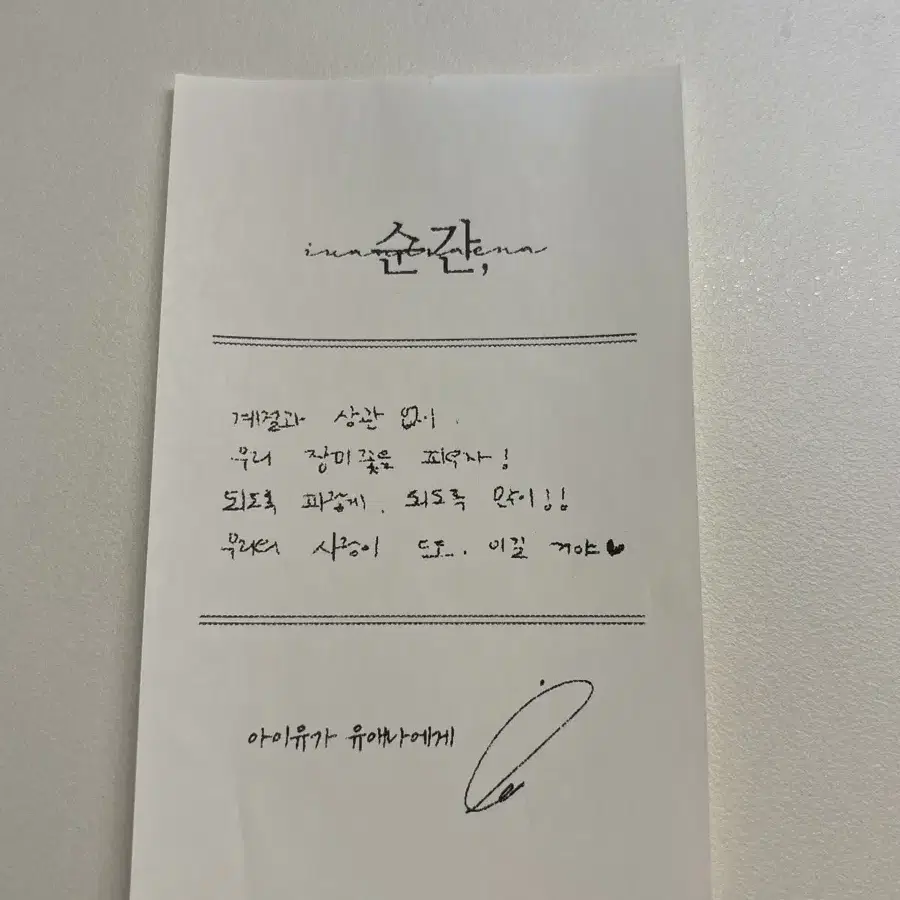 순간,
계절과 상관 없이.
우리 장미꽃을 피우자!
되도록 파랗게. 되도록 많이!!
우리의 사랑이 또또. 이길 거야♥
아이유가 유애나에게